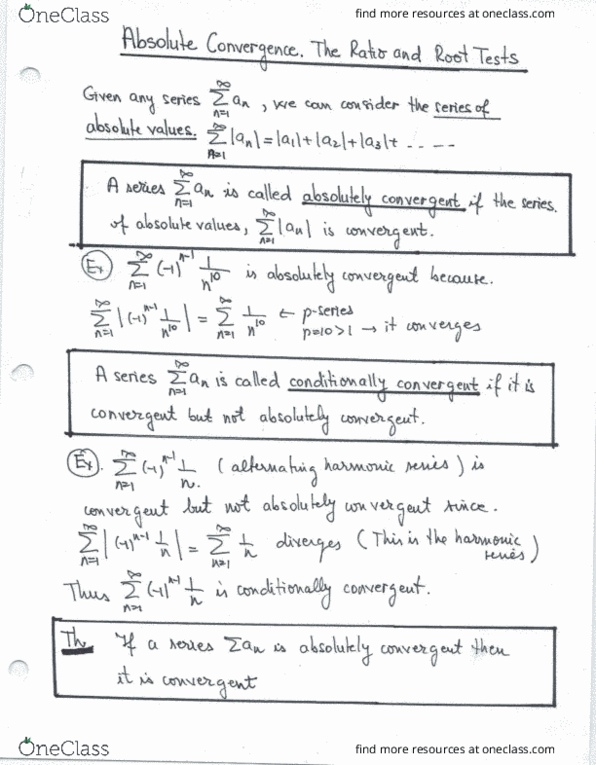 OneClass
find more resources at oneclass.com
Absolute Convergence. The Ratio and Root Tests
Given any series ∑_{n=1}^∞ aₙ, we can consider the series of
absolute values. ∑_{n=1}^∞ |aₙ| = |a₁|+|a₂|+|a₃|+ - - - - -
A series ∑_{n=1}^∞ aₙ is called absolutely convergent if the series.
of absolute values, ∑_{n=1}^∞ |aₙ| is convergent.
Ex ∑_{n=1}^∞ (-1)^{n-1} 1/n^{10} is absolutely convergent because.
∑_{n=1}^∞ |(-1)^{n-1} 1/n^{10}| = ∑_{n=1}^∞ 1/n^{10} ← p-series
p=10>1 → it converges
A series ∑_{n=1}^∞ aₙ is called conditionally convergent if it is
convergent but not absolutely convergent.
Ex. ∑_{n=1}^∞ (-1)^{n-1} 1/n. (alternating harmonic series) is
convergent but not absolutely convergent since.
∑_{n=1}^∞ |(-1)^{n-1} 1/n| = ∑_{n=1}^∞ 1/n diverges (This is the harmonic
series)
Thus ∑_{n=1}^∞ (-1)^{n-1} 1/n is conditionally convergent.
Th. If a series ∑aₙ is absolutely convergent then
it is convergent
OneClass
find more resources at oneclass.com